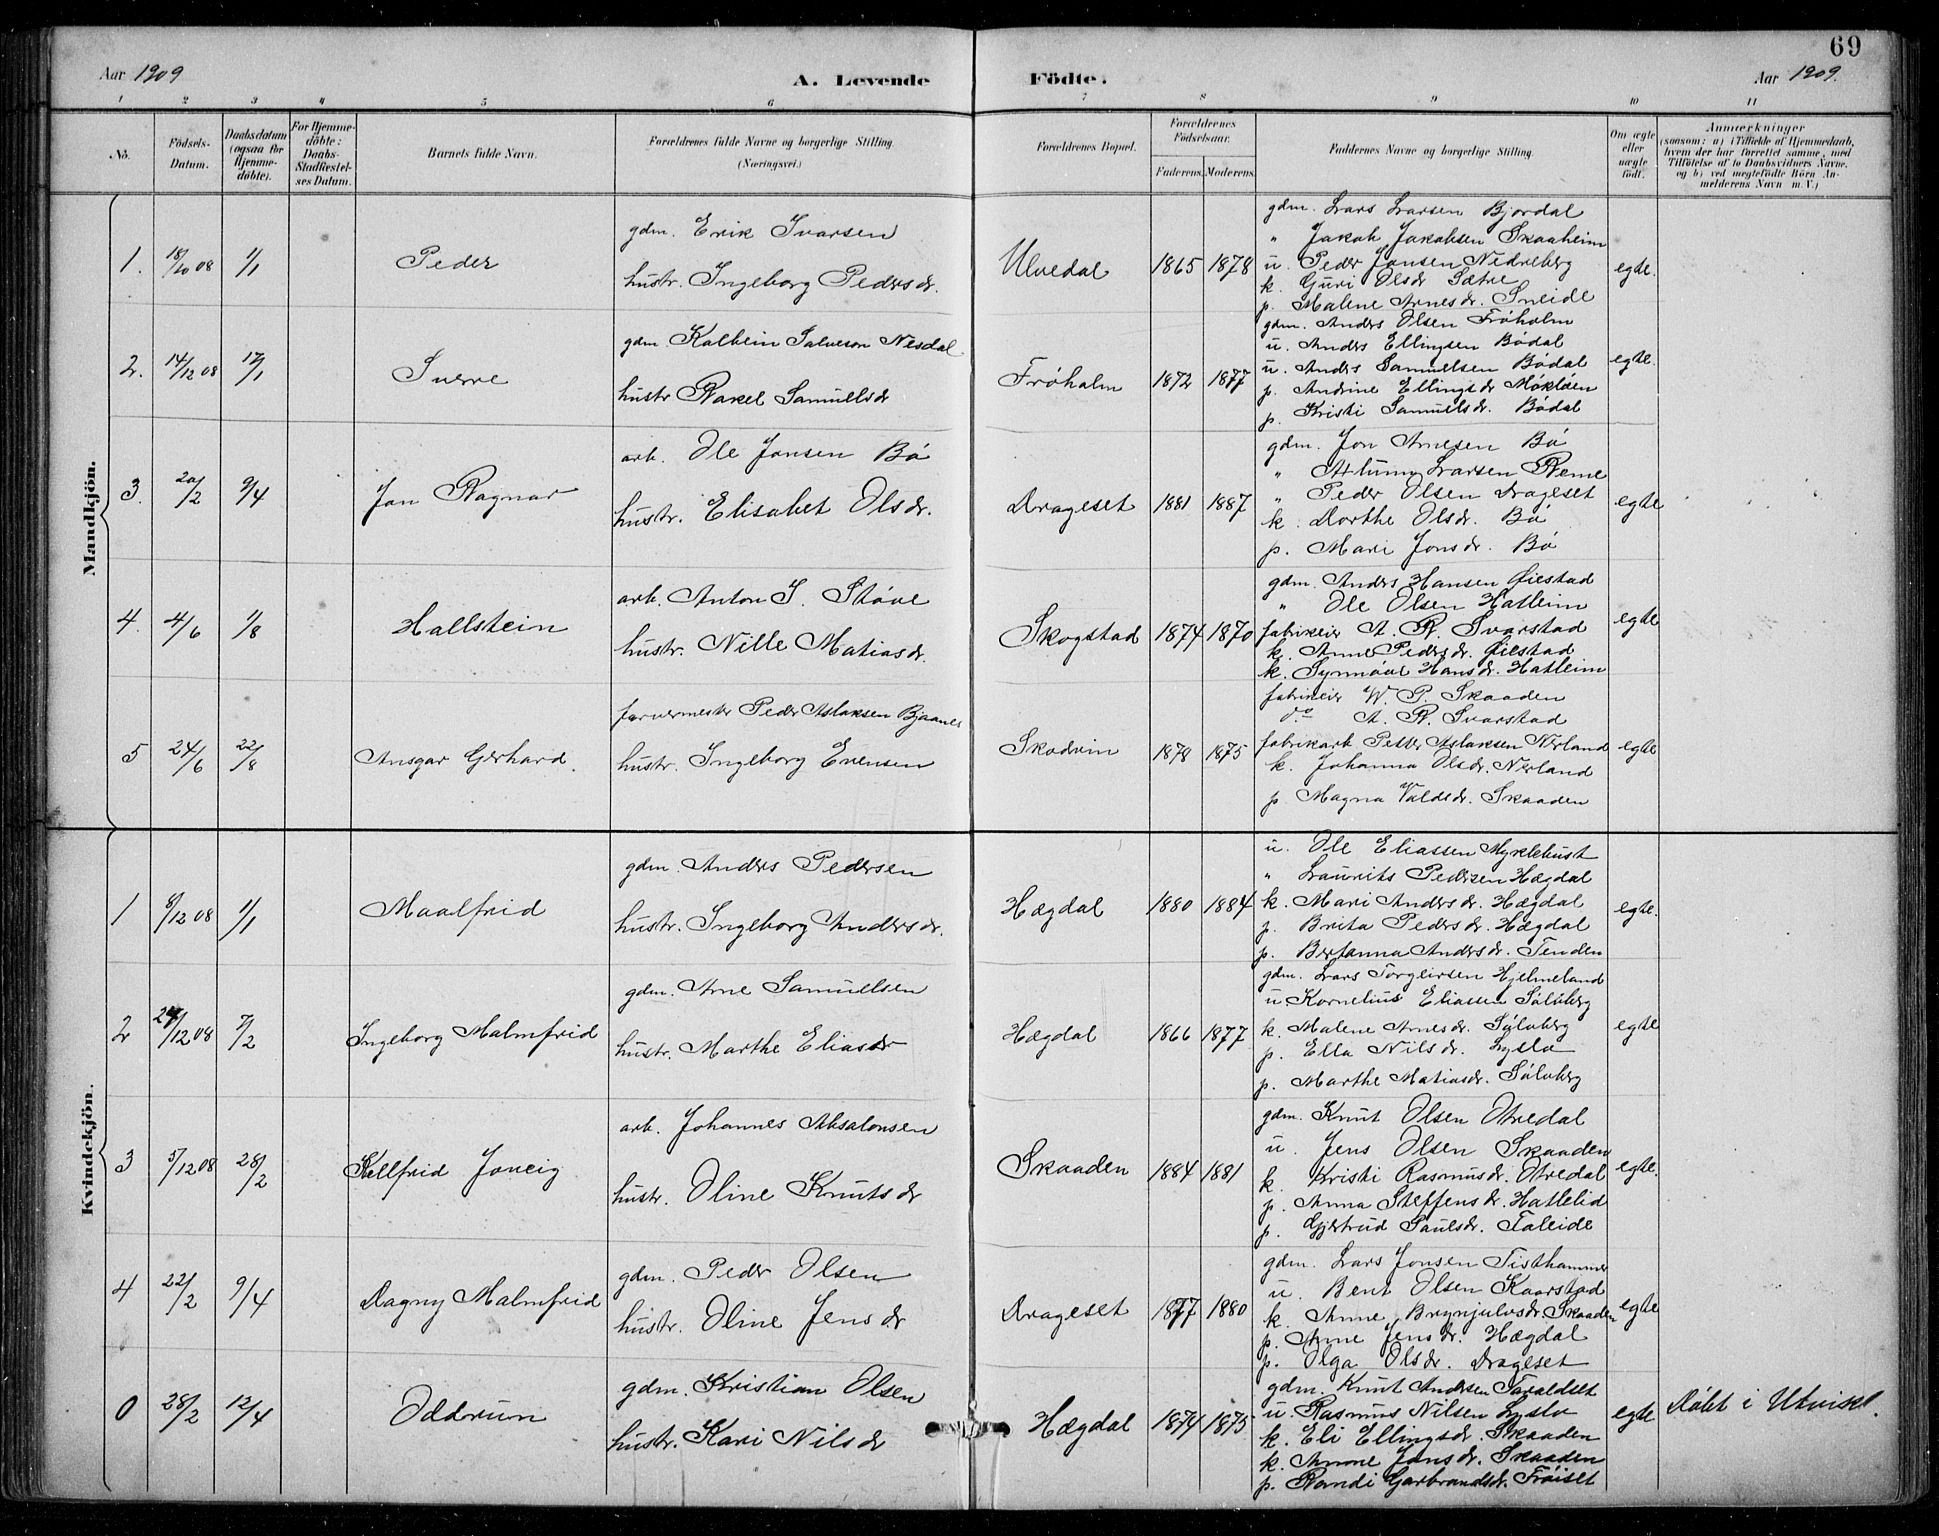 69
Aar 1909
A. Levende Födte.
Aar 1909.
1 2 3 4 5 6 7 8 9 10 11
No.
Födsels-Datum.
Daabsdatum (ogsaa for Hjemmedöbte).
For Hjemmedöbte: Daabs-Stadfæstelses Datum.
Barnets fulde Navn.
Forældrenes fulde Navne og borgerlige Stilling. (Næringsvei.)
Forældrenes Bopæl.
Forældrenes Födselsaar.
Faderens. Moderens.
Faddernes Navne og borgerlige Stilling.
Om ægte eller uægte födt.
Anmærkninger
(saasom: a) i Tilfælde af Hjemmedaab, hvem der har forrettet samme, med Tilföielse af to Daabsvidners Navne, og b) ved uægtefödte Börn Anmelderens Navn m. V.)
Mandkjön.
1. 18/10 08 1/1 Peder
gdm. Erik Ivarsen
hustr. Ingeborg Pedersdr.
Ulvedal 1865 1878
gdm. Lars Larsen Bjordal
" Jakob Jakobsen Skaaheim
u. Peder Jonsen Nedreberg
k. Guri Olsdr Sætre
p. Malene Arnesdr. Sneide
egte.
2. 14/12 08 17/1 Sverre
gdm Kalhein Salveson Nesdal
hustr Rakel Samuelsdr
Frøholm 1872 1877
gdm. Anders Olsen Frøholm
u. Anders Ellingsen Bødal
u. Anders Samuelsen Bødal
p. Andrine Ellingsdr Mökløen
p. Kristi Samuelsdr. Bødal
egte.
3. 20/2 9/4 Jon Ragnar
arb. Ole Jonsen Bø
hustr. Elisabet Olsdr.
Drageset 1881 1887
gdm. Jon Arnesen Bø
" Larsen Reme
" Peder Olsen Drageset
k. Dorthe Olsdr. Bø
p. Mari Jonsdr. Bø
egte
4. 4/6 1/8 Hallstein
arb. Anton J. Støve
hustr. Nille Matiasdr.
Skogstad 1874 1870
gdm. Anders Hansen Øiestad
" Ole Olsen Hatleim
fabrikeier A. R. Svarstad
k. Anne Pedersdr. Øiestad
k. Synnøve Hansdr. Hatleim
egte
5 24/6 22/8 Ansgar Gerhard.
farvermester Peder Aslaksen Bjaanes
hustr. Ingeborg Evensen
Skodvin 1878 1875
fabrikeier W. P. Skaaden
do A. R. Svarstad
fabrikarb Petter Aslaksen Nerland
k. Johanna Olsdr. Nerland
p Magna Valdsdr. Skaaden
egte
Kvindekjön.
1 8/12 08 1/1 Maalfrid
gdm. Anders Pedersen
hustr. Ingeborg Andersdr.
Hægdal 1880 1884
u. Ole Eliassen Myklebust
" Laurits Pedersen Hægdal
k. Mari Andersdr. Hægdal
p. Brita Pedersdr. Hægdal
p. Bertanna Andersdr. Tenden
egte.
2 24/12 08 7/2 Ingeborg Malmfrid
gdm. Arne Samuelsen
hustr. Marthe Eliasdr
Hægdal 1866 1877
gdm. Lars Torgeirsen Hjelmeland
u Kornelius Eliassen Sølvberg
k. Malene Arnesdr. Sølvberg
p. Ella Nilsdr. Lyslo
p. Marthe Matiasdr. Sølvberg
egte
3 5/12 08 28/2 Kellfrid Joneig
arb. Johannes Absalonsen
hustr. Oline Knutsdr
Skaaden 1884 1881
gdm. Knut Olsen Otredal
u. Jens Olsen Skaaden
k. Kristi Rasmusdr. Otredal
p. Anna Steffensdr. Hatlelid
p. Gjertrud Paulsdr. Faleide
egte.
4 22/2 9/4 Dagny Malmfrid
gdm. Peder Olsen
hustr. Oline Jensdr
Drageset 1877 1880
gdm. Lars Jonsen Tisthammer
u. Bent Olsen Kaarstad
k. Anne Brynjulvsdr. Skaaden
p. Anne Jensdr. Hægdal
p. Olga Olsdr. Drageset
egte
0 28/2 12/4 Oddrun
gdm. Kristian Olsen
hustr. Kari Nilsdr
Hægdal 1874 1875
gdm. Knut Andersen Taraldset
u. Rasmus Nilsen Lyslo
k. Eli Ellingsdr. Skaaden
k. Anne Jonsdr. Skaaden
p. Randi Garbrandsdr. Frøiset
egte
Døbt i Utvikl.